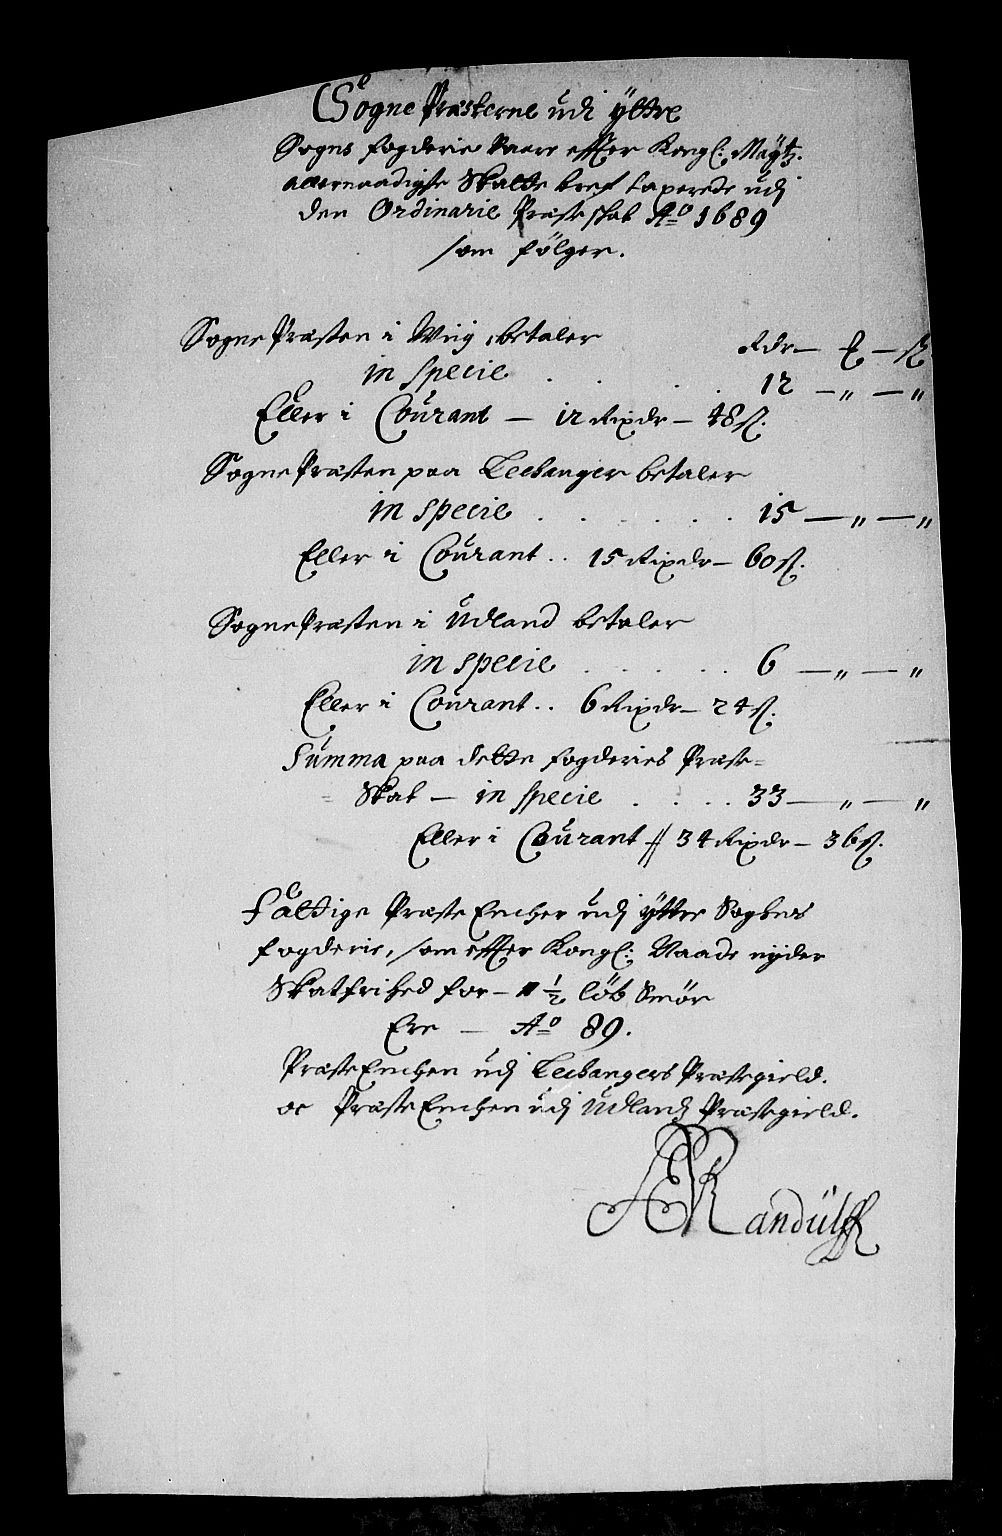 Sogne Præsterne udi Yttre
Sogns fogderie Vaare effter Kongl: Mayts.
allernaadigste Skatte bref taxerede udj
den Ordinarie Præsteskat Ao 1689
som følger.
Sogne Præsten i Wiig, betaler
Rdr — ℔ — ß
in specie . . . . 12 — " — "
Eller i Courant — 12 Rixdr — 48 ß.
Sogne Præsten paa Lechanger betaler
in specie . . . . . . 15 — " — "
Eller i Courant . . 15 Rixdr — 60 ß.
Sogne Præsten i Udland betaler
in specie . . . . . 6 — " — "
Eller i Courant . . 6 Rixdr — 24 ß.
Summa paa dette fogderies Præste=
= Skat — in specie . . . . 33 — " — "
Eller i Courant // 34 Rixdr — 36 ß.
Fattige Præste Encher udj Yttre Sogens
fogderie, som effter Kongl: Naade nyder
Skatfrihed for — 1/2 løb Smør
Ere — Ao 89.
Præste Enchen udj Lechangers Præstegield.
oc Præste Enchen udj Udlandz Præstegield.
Randulff